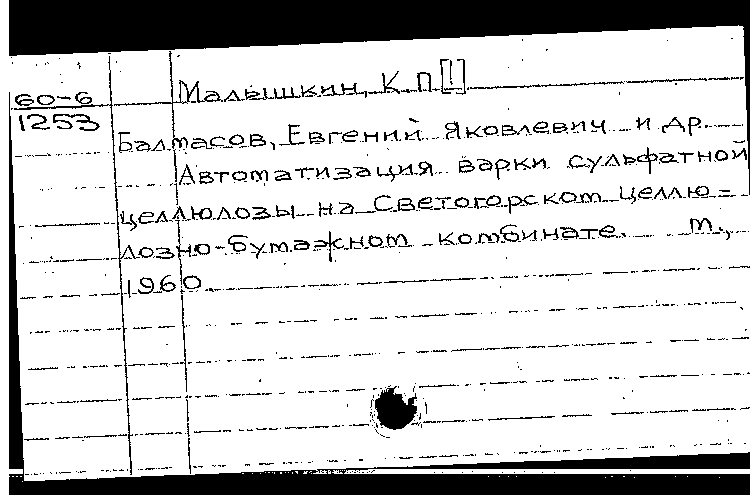 60-6
1253
Малышкин, К. П. []
Балмасов, Евгений Яковлевич и др.
Автоматизация варки сульфатной
целлюлозы на Светогорском целлю=
лозно-бумажном комбинате. М.,
1960.